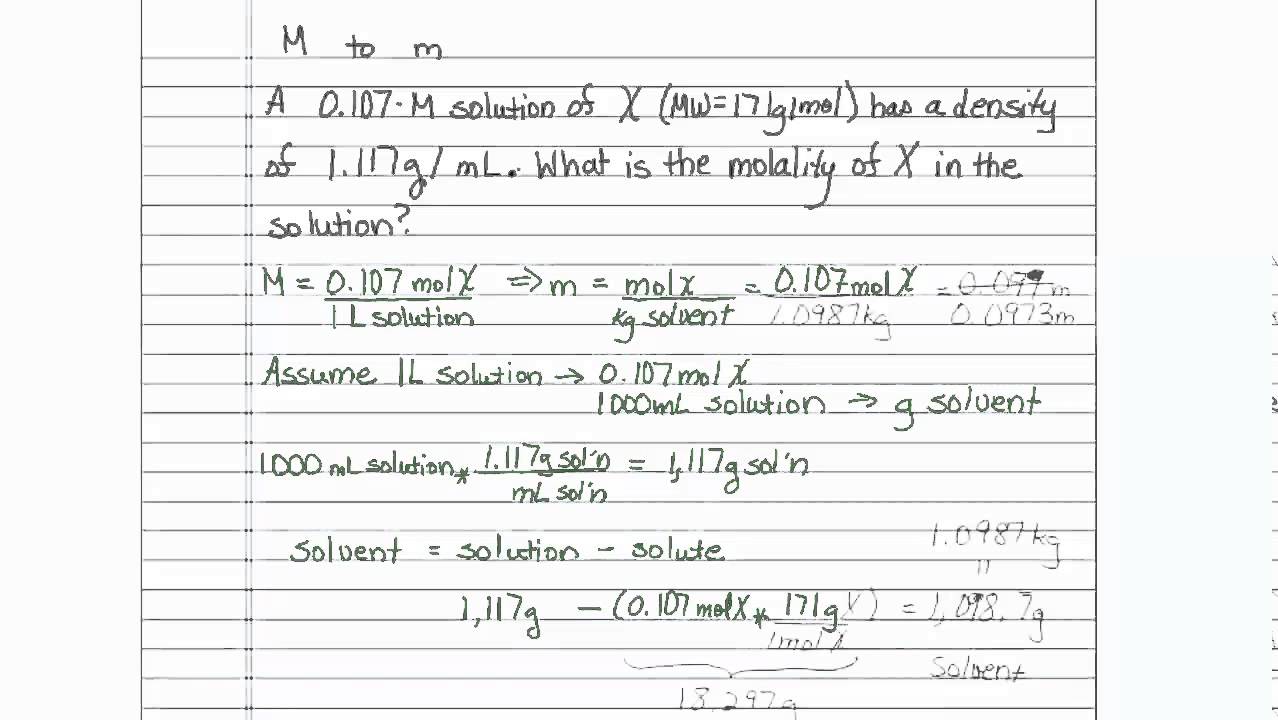 M to m
A 0.107-M solution of X (MW=171g/mol) has a density
of 1.117g/mL. What is the molality of X in the
solution?
M = 0.107 mol X / 1 L solution ⇒ m = mol X / kg solvent = 0.107 mol X / 1.0987 kg = 0.0973m
Assume 1L solution → 0.107 mol X
1000mL solution → g solvent
1000 mL solution * 1.117g sol'n / mL sol'n = 1,117g sol'n
solvent = solution - solute
1.0987kg
"
1,117g - (0.107 mol X * 171g X / 1 mol X) = 1,098.7g
Solvent
18.297g